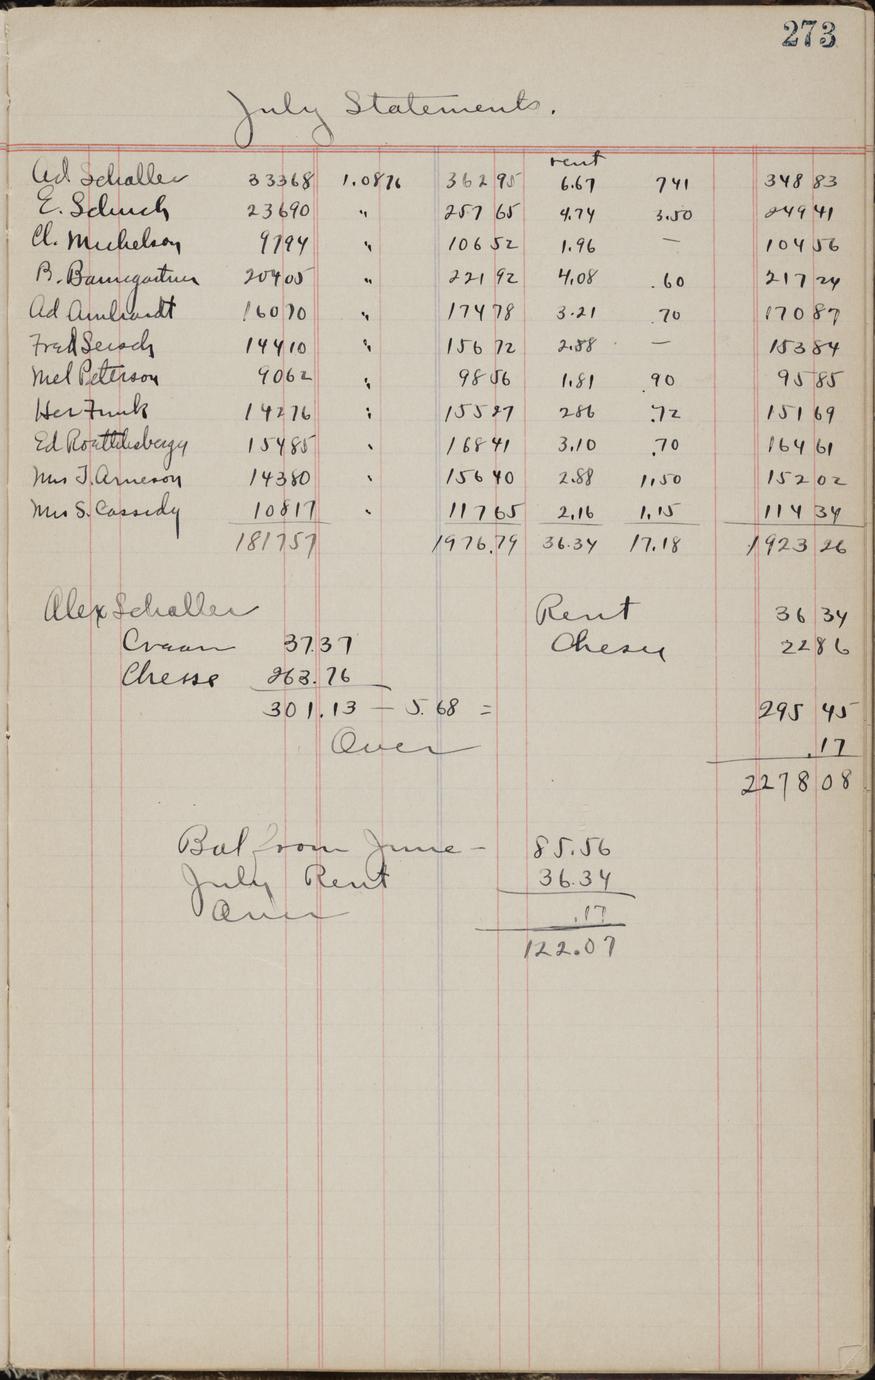 273
July Statements.
rent
Ad. Schaller 33368 1.0876 362 95 6.67 7 41 348 83
E. Schuch 23690 " 257 65 4.74 3.50 249 41
Cl. Michelson 9794 " 106 52 1.96 — 104 56
B. Baumgartner 20405 " 221 92 4.08 .60 217 24
Ad Arnhardt 16070 " 174 78 3.21 .70 170 87
Fred 14410 " 156 72 2.88 — 153 84
Mel Peterson 9062 " 98 56 1.81 .90 95 85
Her Funk 14276 " 155 27 2 86 .72 151 69
Ed 15485 " 168 41 3.10 .70 164 61
Mrs J. Arneson 14380 " 156 40 2.88 1.50 152 02
Mrs S. Cassidy 10817 " 117 65 2.16 1.15 114 34
181757 1976.79 36.34 17.18 1923 26
Alex Schaller Rent 36 34
Cream 37.37 Chese 22 86
Chesse 263.76
301.13 — 5.68 = 295 45
Over .17
2278 08
Bal from June - 85.56
July Rent 36.34
Over .17
122.07